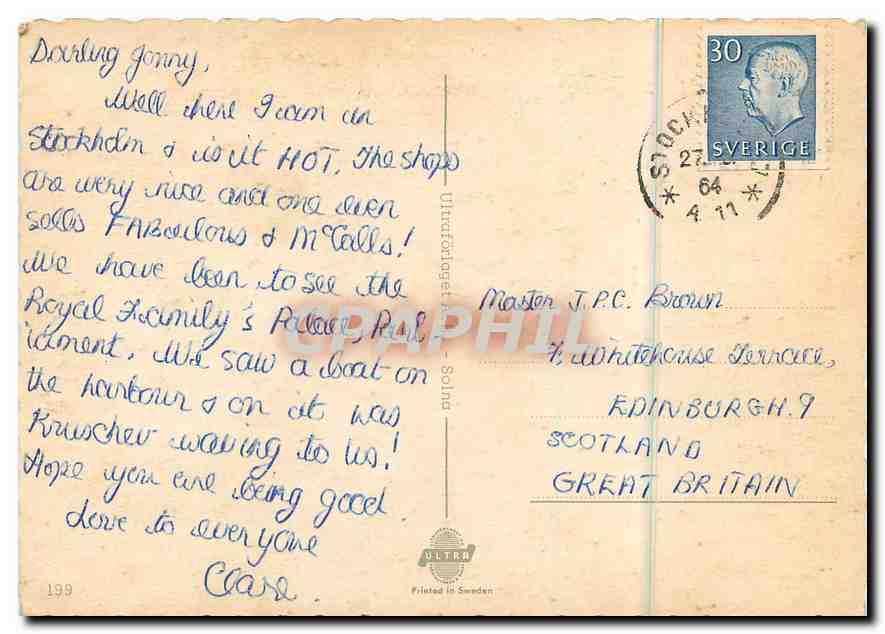 Darling Jonny,
Well here I am in
Stockholm & is it HOT. The shops
are very nice and one even
sells FABulous & McCalls!
We have been to see the
Royal Family's Palace, Parl-
iament. We saw a boat on
the harbour & on it was
Kruschev waving to us!
Hope you are being good
Love to everyone
Clare.
199
Ultraförlaget
- Solna
ULTRA
Printed in Sweden
CPAPHIL
30
SVERIGE
STOCK
27
64
4 11
Master J.P.C. Brown
Whitehouse Terrace,
EDINBURGH. 9
SCOTLAND
GREAT BRITAIN